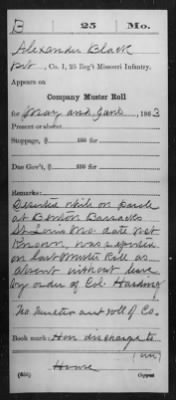 B | 25 | Mo.
Alexander Black
Pvt, Co. I, 25 Reg't Missouri Infantry.
Appears on
Company Muster Roll
for May and June, 1863
Present or absent
Stoppage, $ 100 for
Due Gov't, $ 100 for
Remarks:
Deserted while on parole
at Benton Barracks
St Louis Mo date not
known, was reported
on last Muster Roll as
absent without leave
by order of Col. Harding
No muster out roll of Co.
Book mark: Hon discharge to
Howe
(655) Copyist.